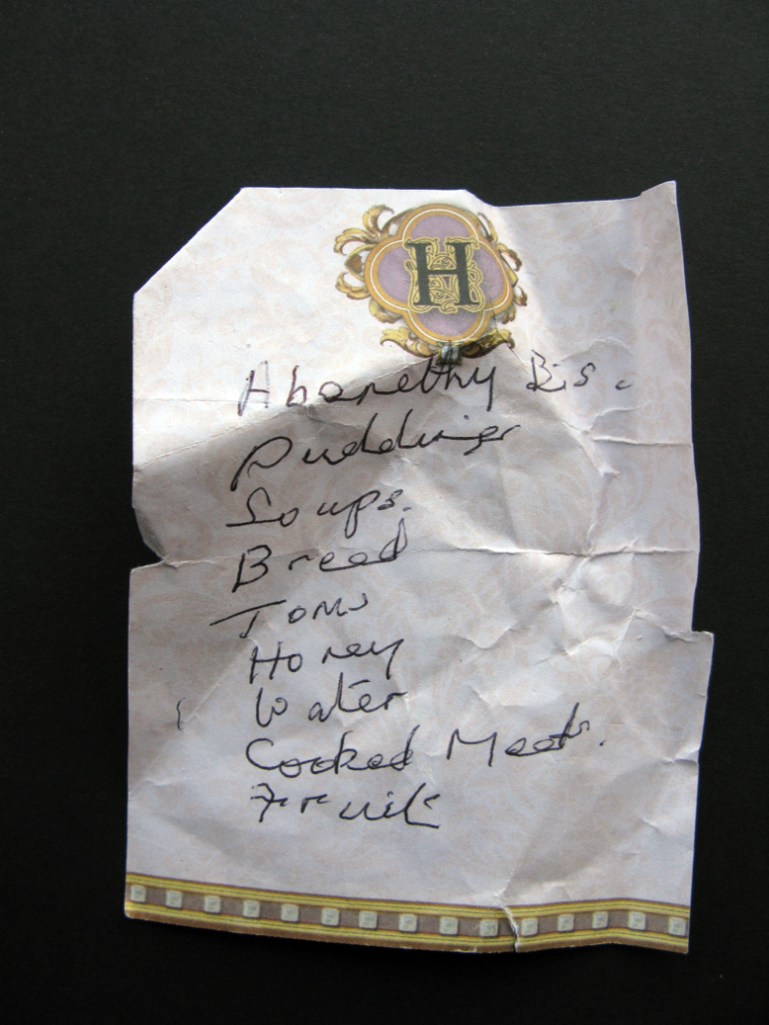 H
Abanethy Bis.
Puddings
Soups.
Bread
Toms
Honey
Water
Cooked Meats.
Fruit